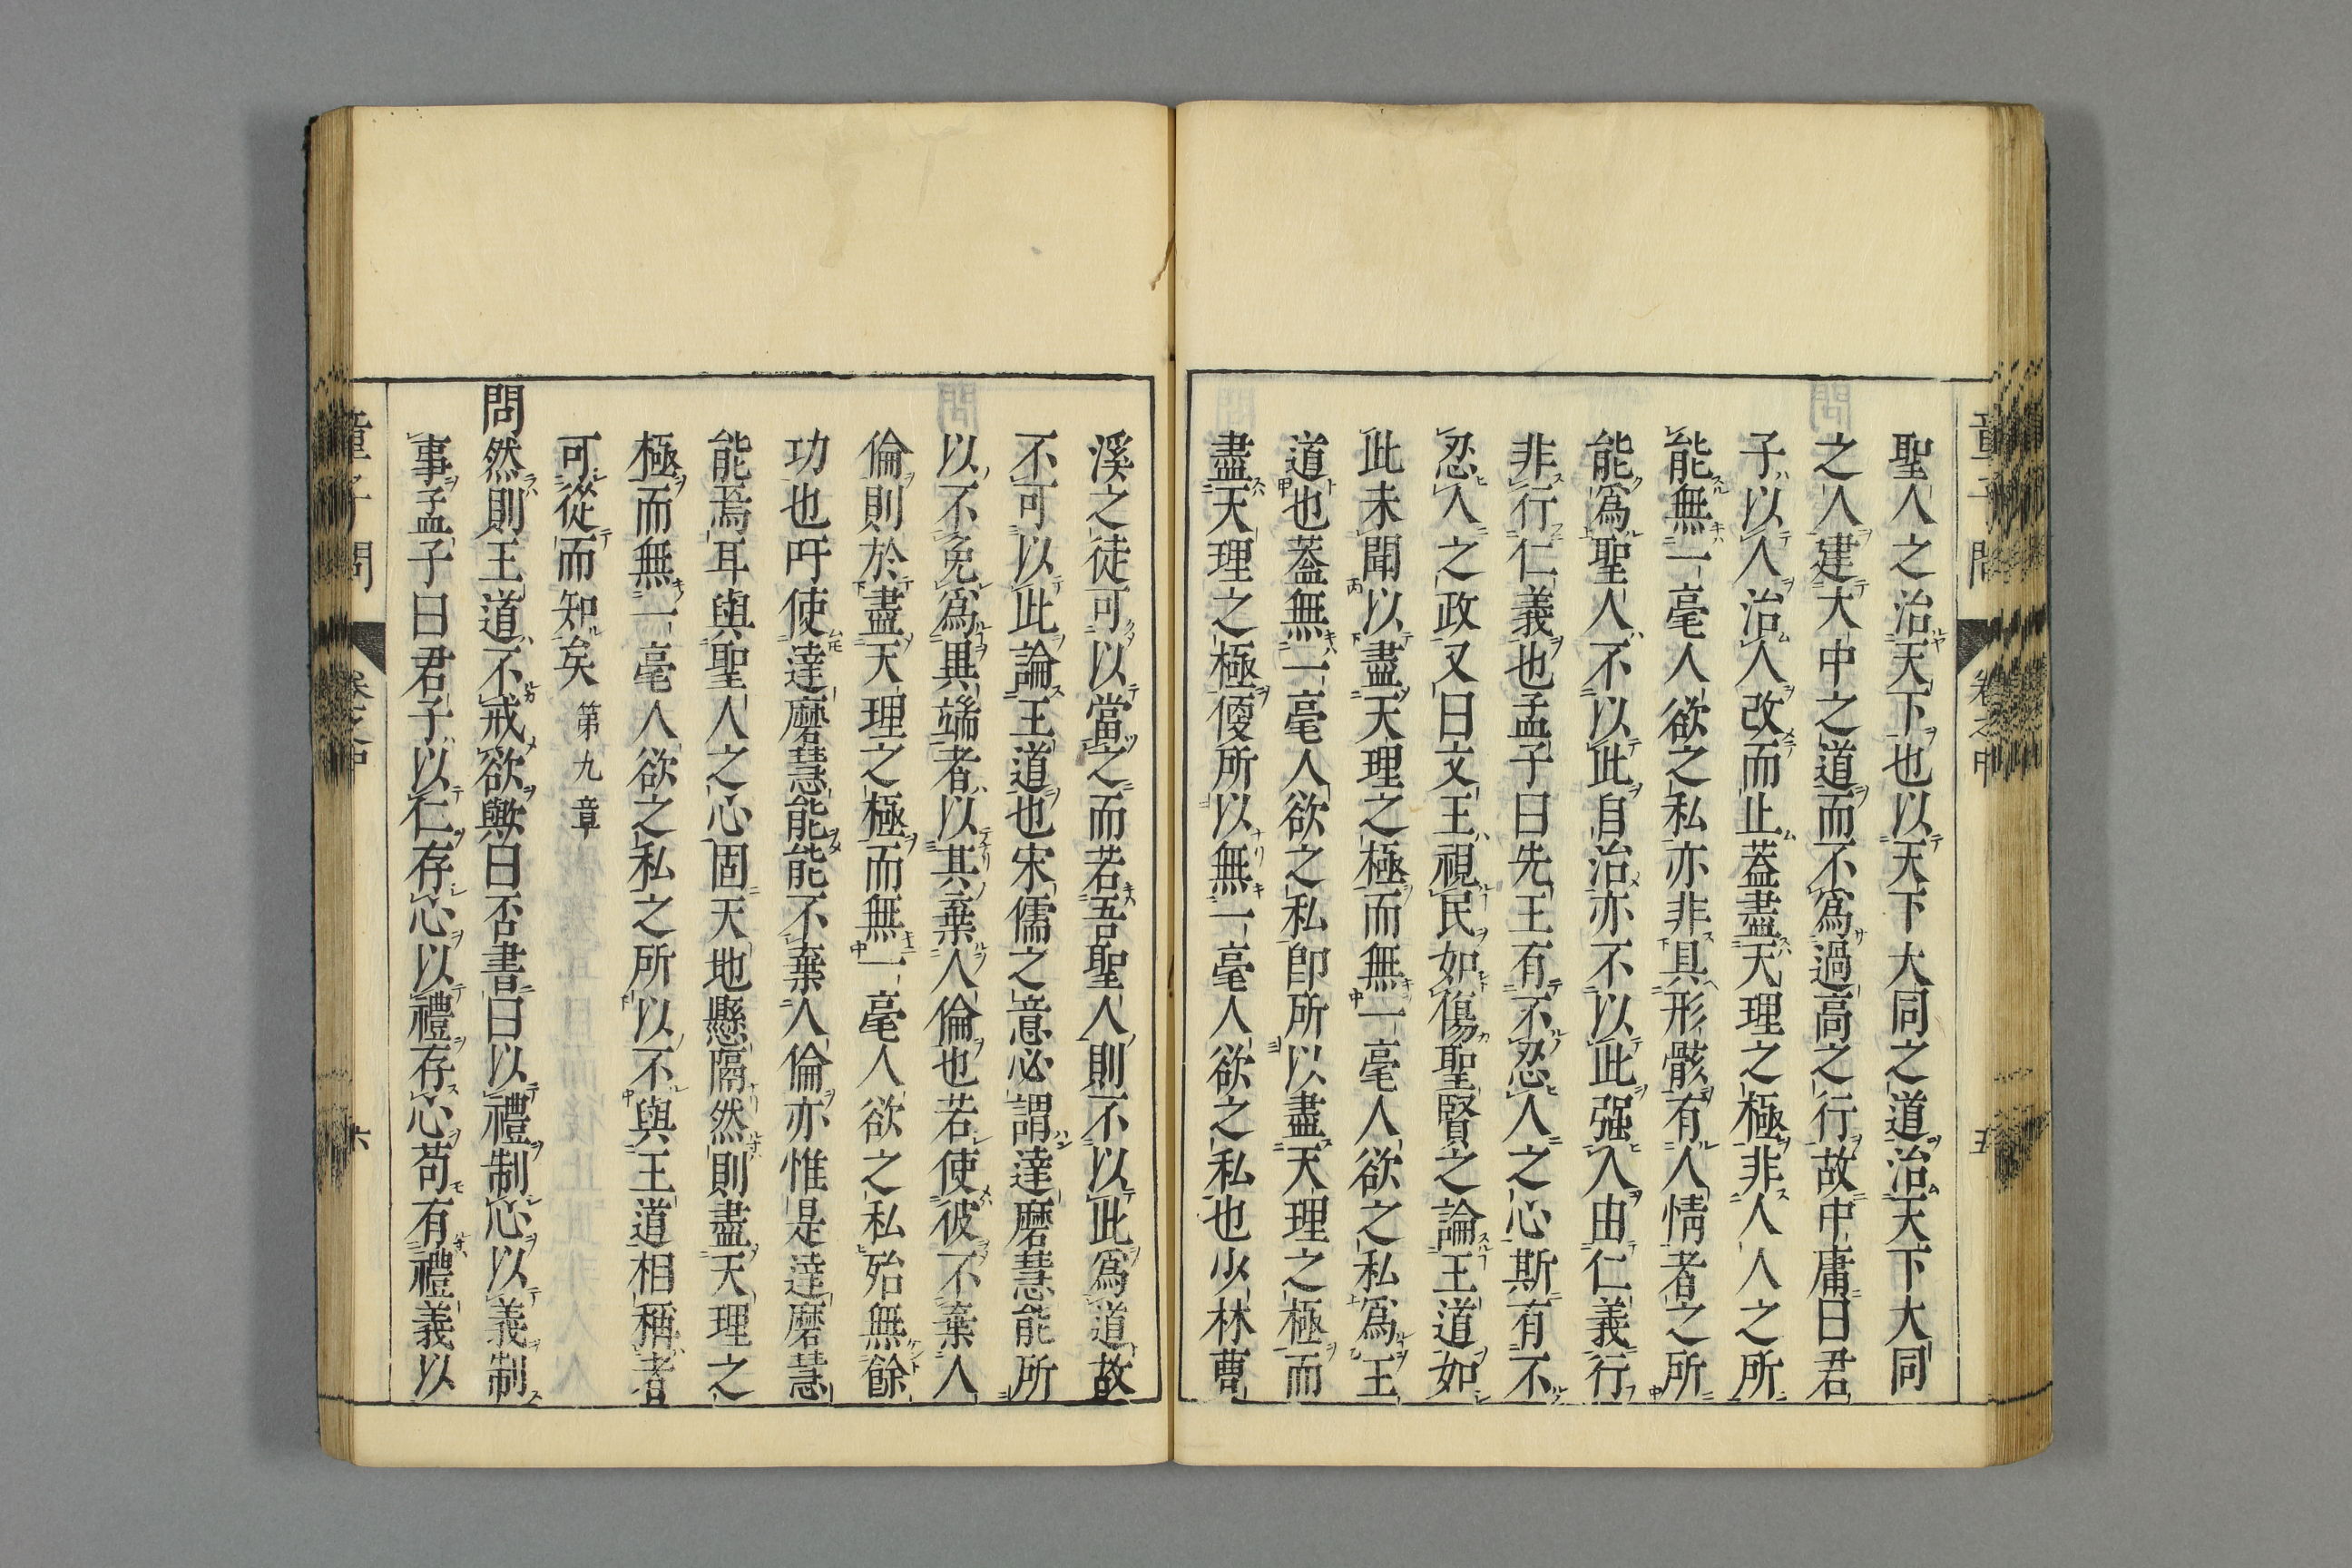 聖人之治天下也以天下大同之道治天下大同
之人建大中之道而不爲過高之行故中庸曰君
子以人治人改而止蓋盡天理之極非人人之所
能無一毫人欲之私亦非具形骸有人情者之所
能爲聖人不以此自治亦不以此强人由仁義行
非行仁義也孟子曰先王有不忍人之心斯有不
忍人之政又曰文王視民如傷聖賢之論王道如
此未聞以盡天理之極而無一毫人欲之私爲王
道也蓋無一毫人欲之私卽所以盡天理之極而
盡天理之極便所以無一毫人欲之私也少林曹
溪之徒可以當之而若吾聖人則不以此爲道故
不可以此論王道也宋儒之意必謂達磨慧能所
以不免爲異端者以其棄人倫也若使彼不棄人
倫則於盡天理之極而無一毫人欲之私殆無餘
功也吁使達磨慧能能不棄人倫亦惟是達磨慧
能焉耳與聖人之心固天地懸隔然則盡天理之
極而無一毫人欲之私之所以不與王道相稱者
可從而知矣 第九章
問然則王道不戒欲歟曰否書曰以禮制心以義制
事孟子曰君子以仁存心以禮存心苟有禮義以